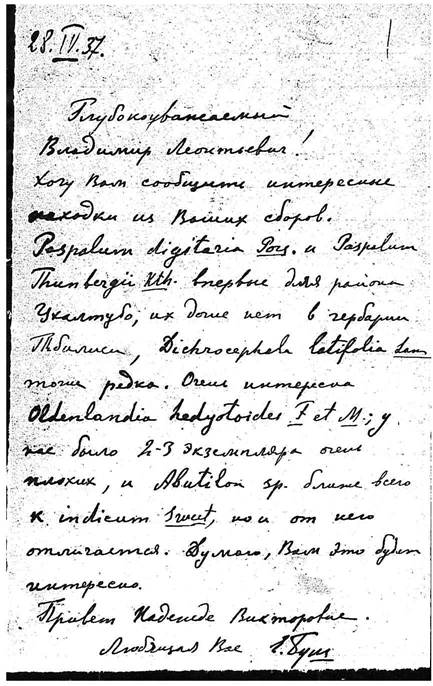 28.IV.37.
Глубокоуважаемый
Владимир Леонтьевич!
Хочу Вам сообщить интересные
находки из Ваших сборов.
Paspalum digitaria Pors. и Paspalum
Thunbergii Kth. впервые для района
Цхалтубо, их даже нет в гербарии
Тбилиси, Dichrocephala latifolia Lam
тоже редка. Очень интересна
Oldenlandia hedyotoides F et M.; у
нас было 2-3 экземпляра очень
плохих, и Abutilon sp. ближе всего
к indicum Sweet, но и от него
отличается. Думаю, Вам это будет
интересно.
Привет Надежде Викторовне.
Любящая Вас Е. Буш